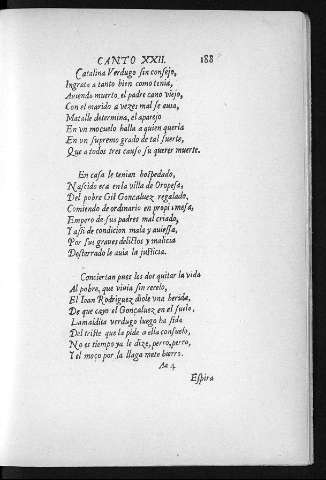 CANTO XXII. 188
Catalina Verdugo sin consejo,
Ingrata a tanto bien como tenia,
Auiendo muerto el padre cano viejo,
Con el marido a vezes mal se auia,
Matalle determina, el aparejo
En vn moçuelo halla a quien queria
En vn supremo grado de tal suerte,
Que a todos tres causo su querer muerte.
En casa le tenian hospedado,
Nascido era en la villa de Oropesa,
Del pobre Gil Gonçaluez regalado,
Comiendo de ordinario en propia mesa,
Empero de sus padres mal criado,
Y assi de condicion mala y auiessa,
Por sus graues delictos y malicia
Desterrado le auia la justicia.
Conciertan pues los dos quitar la vida
Al pobre, que viuia sin recelo,
El Ioan Rodriguez diole vna herida,
De que cayo el Gonçaluez en el suelo,
La maldita verdugo luego ha sido
Del triste que la pide a ella consuelo,
No es tiempo ya le dize, perro, perro,
Y el moço por la llaga mete hierro.
Aa 4
Espira